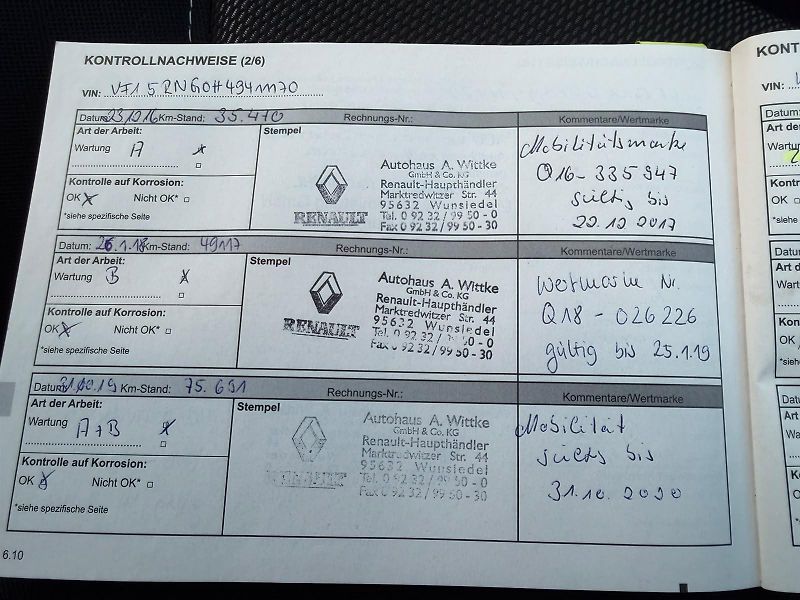 KONTROLLNACHWEISE (2/6)
VIN:
Datum: 23.12.16 Km-Stand: 35.470 Rechnungs-Nr.: Kommentare/Wertmarke
Art der Arbeit: Stempel
Wartung A x
Kontrolle auf Korrosion:
OK x Nicht OK*
*siehe spezifische Seite
Autohaus A. Wittke
GmbH & Co. KG
Renault-Haupthändler
Marktredwitzer Str. 44
95632 Wunsiedel
Tel. 0 92 32 / 99 50 - 0
Fax 0 92 32 / 99 50 - 30
RENAULT
Mobilitätsmarke
Q16-335947
gültig bis
22.12.2017
Datum: 26.1.18 Km-Stand: 49117 Rechnungs-Nr.: Kommentare/Wertmarke
Art der Arbeit: Stempel
Wartung B x
Kontrolle auf Korrosion:
OK x Nicht OK*
*siehe spezifische Seite
Autohaus A. Wittke
GmbH & Co. KG
Renault-Haupthändler
Marktredwitzer Str. 44
95632 Wunsiedel
Tel. 0 92 32 / 99 50 - 0
Fax 0 92 32 / 99 50 - 30
RENAULT
Wertmarke Nr.
Q18 - 026226
gültig bis 25.1.19
Datum: Km-Stand: 75.691 Rechnungs-Nr.: Kommentare/Wertmarke
Art der Arbeit: Stempel
Wartung A+B x
Kontrolle auf Korrosion:
OK x Nicht OK*
*siehe spezifische Seite
Autohaus A. Wittke
GmbH & Co. KG
Renault-Haupthändler
Marktredwitzer Str. 44
95632 Wunsiedel
Tel. 0 92 32 / 99 50 - 0
Fax 0 92 32 / 99 50 - 30
RENAULT
Mobilität
gültig bis
31.10.2020
6.10
KONT
VIN: